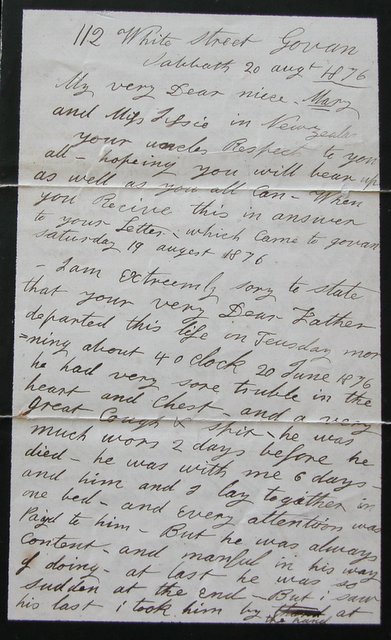 112 White Street Govan
Sabbath 20 augt 1876
My very Dear niece, Mary
and Miss Lissie in New Zealan
your uncles Respect to you
all - hopeing you will bear up
as well as you all Can - When
you Recive this in answer
to your Letter. which Came to govan
saturday 19 august 1876
- I am extreemly sory to state
that your very Dear Father
departed this life on Teusday mor
=ning about 4 o clock 20 June 1876
he had very sore truble in the
heart and Chest - and a very
great Cough & spit - he was
much wors 2 days before he
died - he was with me 6 days -
and him and I lay together in
one bed - and every attentoin was
Payd to him - But he was always
Content - and manful in his way
of doing - at last he was so
sudden at the end - But i saw
his last i took him by the hand at